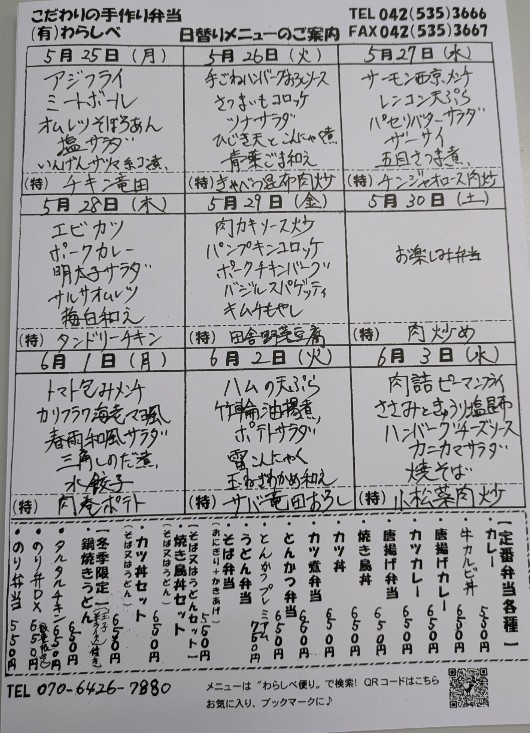 こだわりの手作り弁当
(有)わらしべ
日替りメニューのご案内
TEL 042(535)3666
FAX 042(535)3667
5月25日(月)
アジフライ
ミートボール
オムレツそぼろあん
塩サラダ
いんげんサツマ糸コ煮
(特) チキン竜田
5月26日(火)
手ごねハンバーグおろしソース
さつまいもコロッケ
ツナサラダ
ひじき天とこんにゃく煮
青菜ごま和え
(特) きゃべつ昆布肉炒
5月27日(水)
サーモン西京メンチ
レンコン天ぷら
パセリバターサラダ
ザーサイ
五目さつま煮
(特) チンジャオロース肉炒
5月28日(木)
エビカツ
ポークカレー
明太子サラダ
サルサオムレツ
梅白和え
(特) タンドリーチキン
5月29日(金)
肉カキソース炒
パンプキンコロッケ
ポークチキンバーグ
バジルスパゲッティ
キムチもやし
(特) 田舎野菜豆腐
5月30日(土)
お楽しみ弁当
(特) 肉炒め
6月1日(月)
トマト包みメンチ
カリフラワ海老マヨ風
春雨和風サラダ
三角しのだ煮
水餃子
(特) 肉巻ポテト
6月2日(火)
ハムの天ぷら
竹輪油揚煮
ポテトサラダ
雷こんにゃく
玉ねぎわかめ和え
(特) サバ竜田おろし
6月3日(水)
肉詰ピーマンフライ
ささみときゅうり塩昆布
ハンバーグチーズソース
カニカマサラダ
焼そば
(特) 小松菜肉炒
【定番弁当各種】
・カレー 550円
・牛カルビ丼 650円
・唐揚げカレー 650円
・カツカレー 650円
・唐揚げ弁当 650円
・焼き鳥丼 650円
・カツ丼 650円
・カツ煮弁当 650円
・とんかつ弁当 650円
・とんかつプレミアム 750円
・うどん弁当
・そば弁当
(おにぎり+かきあげ) 550円
【そば又はうどんセット】
・焼き鳥丼セット
(そば又はうどん) 650円
・カツ丼セット
(そば又はうどん) 650円
【冬季限定】
・鍋焼きうどん 650円
・タルタルチキン 650円
・のり弁DX 650円
・のり弁当 550円
TEL 070-6426-7880
メニューは"わらしべ便り"で検索! QRコードはこちら
お気に入り、ブックマークに♪